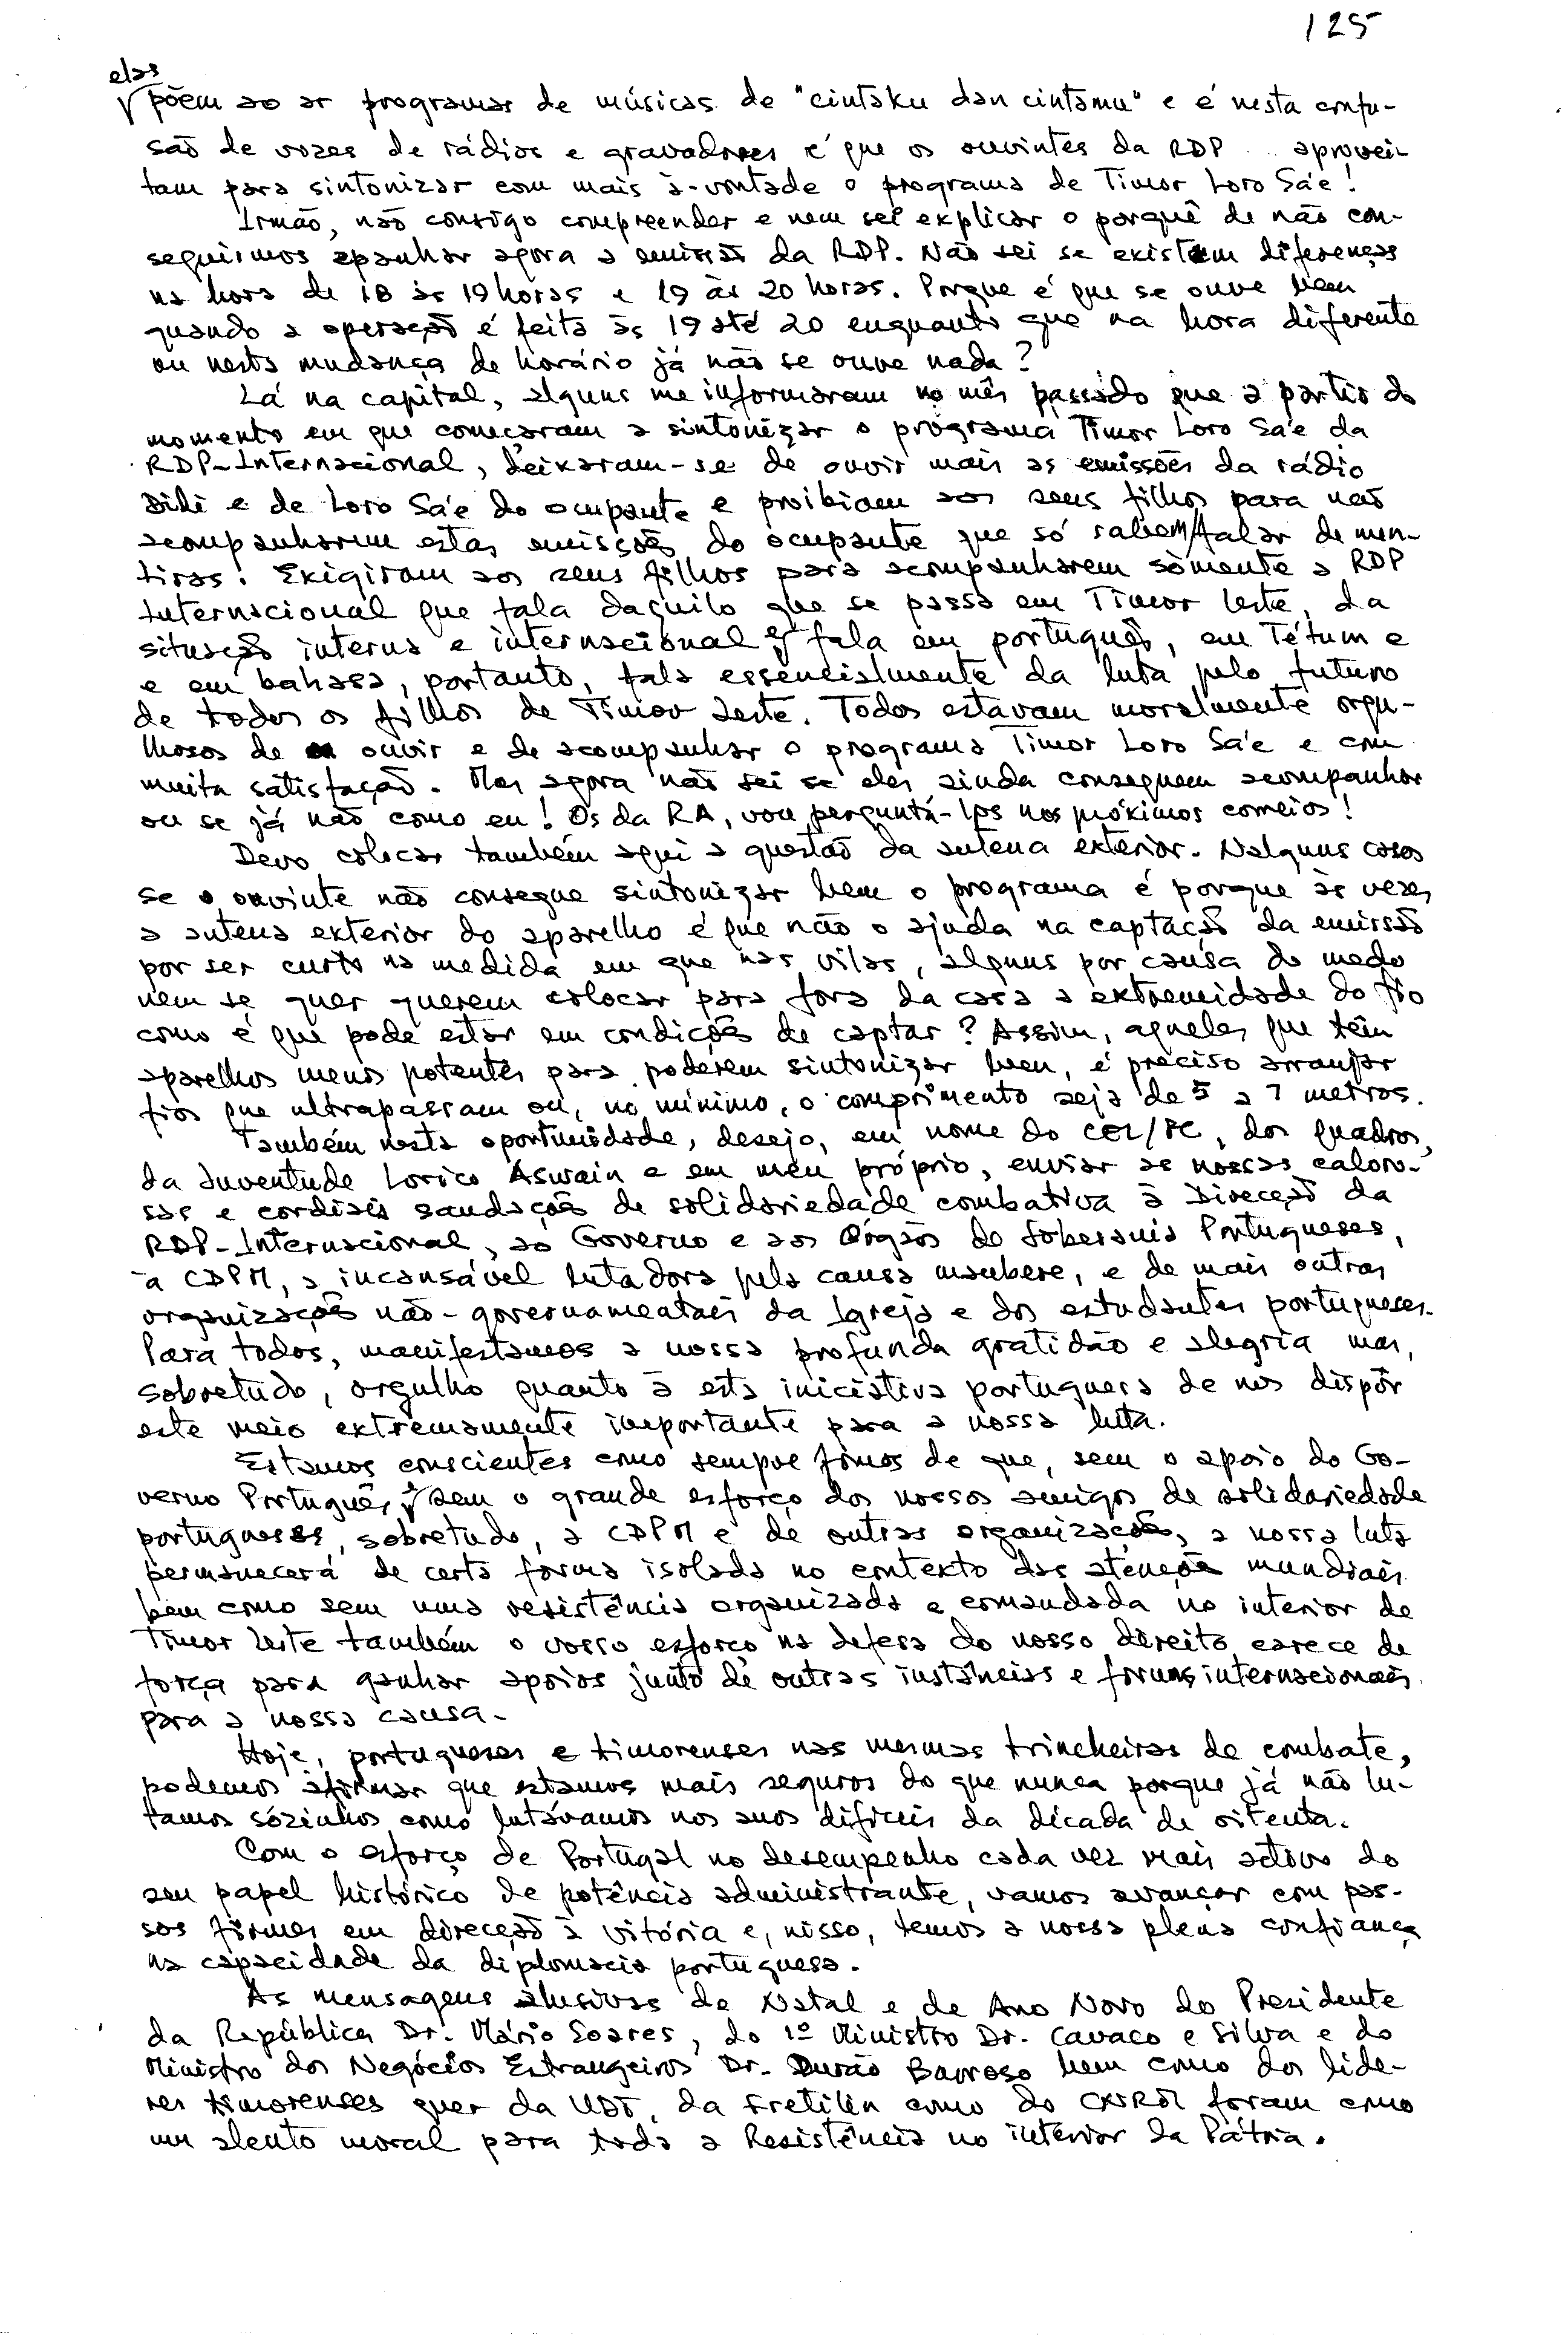 125
elas
põem ao ar programas de músicas de "cintaku dan cintamu" e é nesta confu-
são de vozes de rádios e gravadores é que os ouvintes da RDP aprovei-
tam para sintonizar com mais à-vontade o programa de Timor Loro Sáe!
Irmão, não consigo compreender e nem sei explicar o porquê de não con-
seguirmos apanhar agora a emissão da RDP. Não sei se existem diferenças
na hora de 18 às 19 horas e 19 às 20 horas. Porque é que se ouve bem
quando a operação é feita às 19 até 20 enquanto que na hora diferente
ou nesta mudança de horário já não se ouve nada?
Lá na capital, alguns me informaram no mês passado que a partir do
momento em que começaram a sintonizar o programa Timor Loro Sáe da
RDP-Internacional, deixaram-se de ouvir mais as emissões da rádio
Dili e de Loro Sáe do ocupante e proibiam aos seus filhos para não
acompanharem estas emissões do ocupante que só sabem falar de men-
tiras! Exigiram aos seus filhos para acompanharem sòmente a RDP
Internacional que fala daquilo que se passa em Timor Leste, da
situação interna e internacional e fala em português, em Tétum e
e em bahasa, portanto, fala essencialmente da luta pelo futuro
de todos os filhos de Timor Leste. Todos estavam moralmente orgu-
lhosos de ouvir e de acompanhar o programa Timor Loro Sáe e com
muita satisfação. Mas agora não sei se eles ainda conseguem acompanhar
ou se já não como eu! Os da RA, vou perguntá-los nos próximos correios!
Devo colocar também aqui a questão da antena exterior. Nalguns casos
se o ouvinte não consegue sintonizar bem o programa é porque às vezes
a antena exterior do aparelho é que não o ajuda na captação da emissão
por ser curto na medida em que nas vilas, alguns por causa do medo
nem se quer querem colocar para fora da casa a extremidade do fio
como é que pode estar em condições de captar? Assim, aqueles que têm
aparelhos menos potentes para poderem sintonizar bem, é preciso arranjar
fios que ultrapassam ou, no mínimo, o comprimento seja de 5 a 7 metros.
Também nesta oportunidade, desejo, em nome do CEL/FC, dos quadros,
da Juventude Lorico Aswain e em meu próprio, enviar as nossas caloro-
sas e cordiais saudações de solidariedade combativa à Direcção da
RDP-Internacional, ao Governo e aos Órgãos de Soberania Portugueses,
à CDPM, a incansável lutadora pela causa maubere, e de mais outras
organizações não-governamentais da Igreja e dos estudantes portugueses.
Para todos, manifestamos a nossa profunda gratidão e alegria mas,
sobretudo, orgulho quanto à esta iniciativa portuguesa de nos dispôr
este meio extremamente importante para a nossa luta.
Estamos conscientes como sempre fomos de que, sem o apoio do Go-
verno Português e sem o grande esforço dos nossos amigos de solidariedade
portugueses, sobretudo, a CDPM e de outras organizações, a nossa luta
permanecerá de certa forma isolada no contexto das atenções mundiais
bem como sem uma resistência organizada e comandada no interior de
Timor Leste também o vosso esforço na defesa do nosso direito carece de
força para ganhar apoios junto de outras instâncias e foruns internacionais
para a nossa causa.
Hoje, portugueses e timorenses nas mesmas trincheiras de combate,
podemos afirmar que estamos mais seguros do que nunca porque já não lu-
tamos sòzinhos como lutávamos nos anos difíceis da década de oitenta.
Com o esforço de Portugal no desempenho cada vez mais activo do
seu papel histórico de potência administrante, vamos avançar com pas-
sos firmes em direcção à vitória e, nisso, temos a nossa plena confiança
na capacidade da diplomacia portuguesa.
As mensagens alusivas de Natal e de Ano Novo do Presidente
da República Dr. Mário Soares, do 1º Ministro Dr. Cavaco e Silva e do
Ministro dos Negócios Estrangeiros Dr. Durão Barroso bem como dos líde-
res timorenses quer da UDT, da Fretilin como do CNRM foram como
um alento moral para toda a Resistência no interior da Pátria.